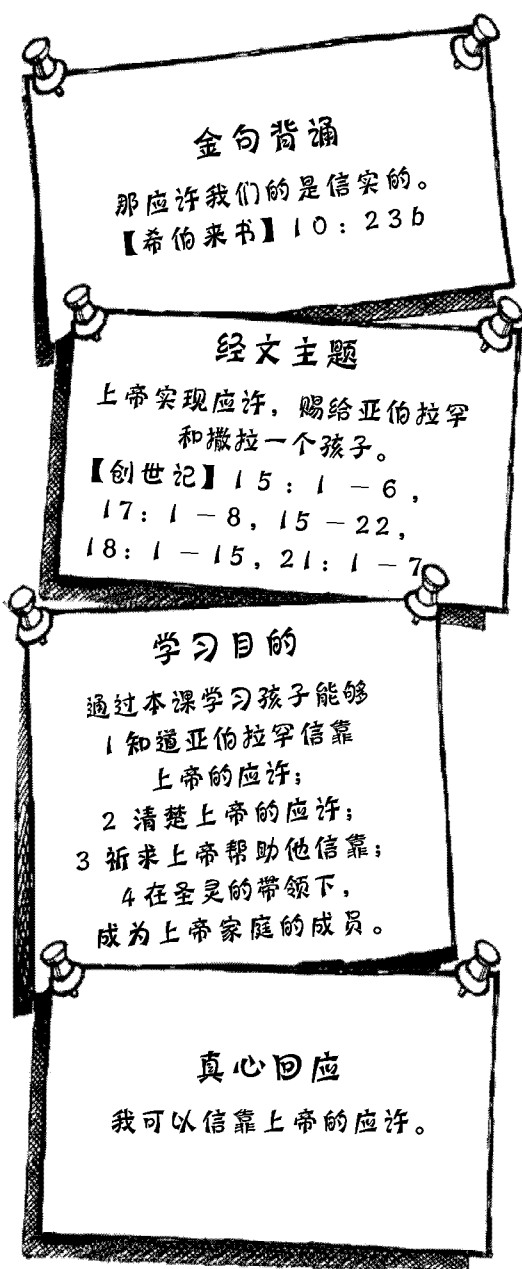 金句背诵
那应许我们的是信实的。
【希伯来书】10：23b
经文主题
上帝实现应许，赐给亚伯拉罕
和撒拉一个孩子。
【创世记】15：1－6，
17：1－8，15－22，
18：1－15，21：1－7
学习目的
通过本课学习孩子能够
1 知道亚伯拉罕信靠
上帝的应许；
2 清楚上帝的应许；
3 祈求上帝帮助他信靠；
4 在圣灵的带领下，
成为上帝家庭的成员。
真心回应
我可以信靠上帝的应许。